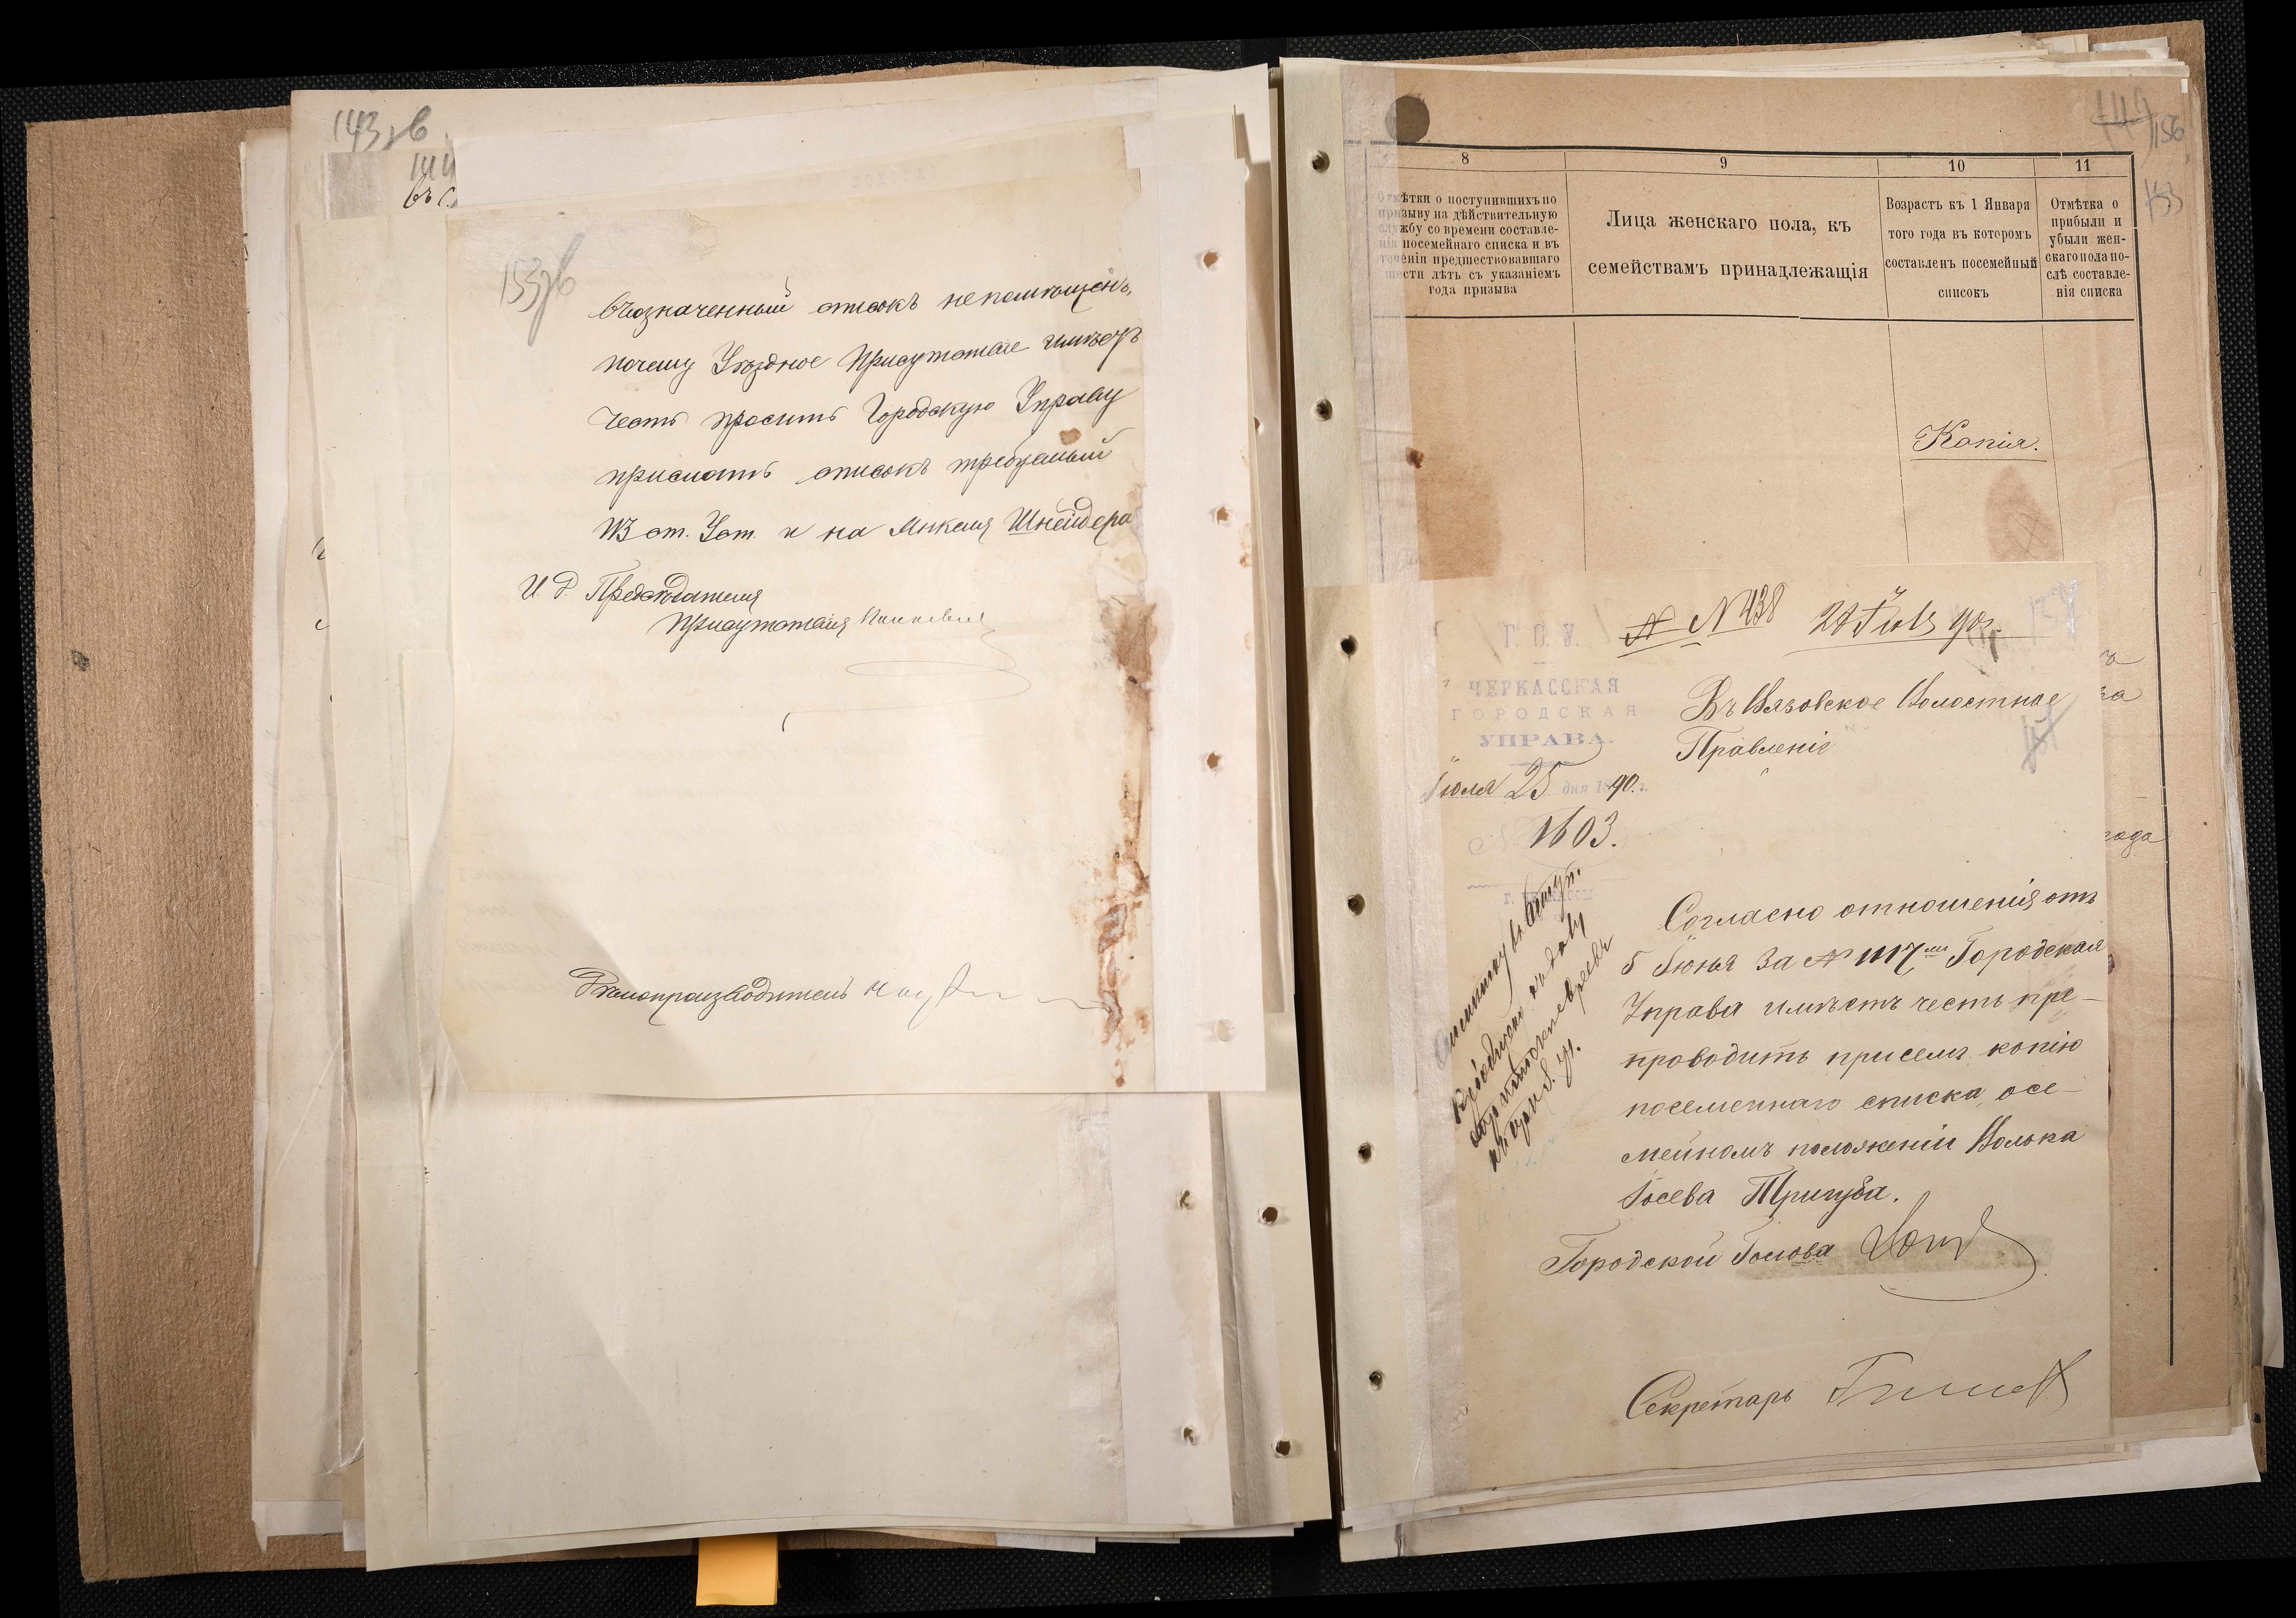 143 об
144
въ с
153 об
въозначенный списокъ не помѣщенъ,
почему Уѣздное Присутствіе имѣетъ
честь просить Городскую Управу
прислать списокъ требуемый
ст. Уст. и на Янкеля Шнейдера
И. д. Предсѣдателя
Присутствія
Дѣлопроизводитель
149
156
153
8
9
10
11
Отмѣтки о поступившихъ по
призыву на дѣйствительную
службу со времени составле-
нія посемейнаго списка и въ
теченіи предшествовавшаго
шести лѣтъ съ указаніемъ
года призыва
Лица женскаго пола, къ
семействамъ принадлежащія
Возрастъ къ 1 Января
того года въ которомъ
составленъ посемейный
списокъ
Отмѣтка о
прибыли и
убыли жен-
скаго пола по-
слѣ составле-
нія списка
Копія.
№ 438 28 Іюля 90 г.
Г. О. У.
ЧЕРКАССКАЯ
ГОРОДСКАЯ
УПРАВА.
Іюля 25 дня 1890 г.
№ 1603.
Г. ЧЕРКАССЫ
Въ Вязовское Волостное
Правленіе
года
Согласно отношенія отъ
5 Іюня за № 1117 Городская
Управа имѣетъ честь пре-
проводить присемъ копію
посемейнаго списка о се-
мейномъ положеніи Волька
Іосева Тригуба.
Городской Голова
Секретарь